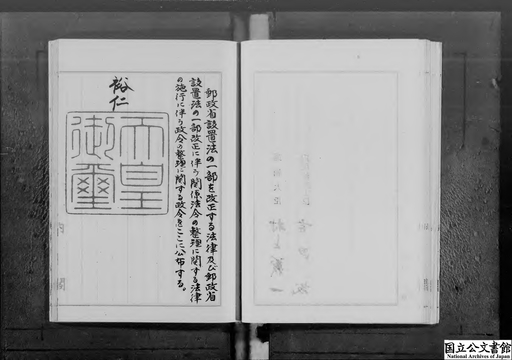 郵政省設置法の一部を改正する法律及び郵政省
設置法の一部改正に伴う関係法令の整理に関する法律
の施行に伴う政令の整理に関する政令をここに公布する。
裕仁
天皇
御璽
国立公文書館
National Archives of Japan